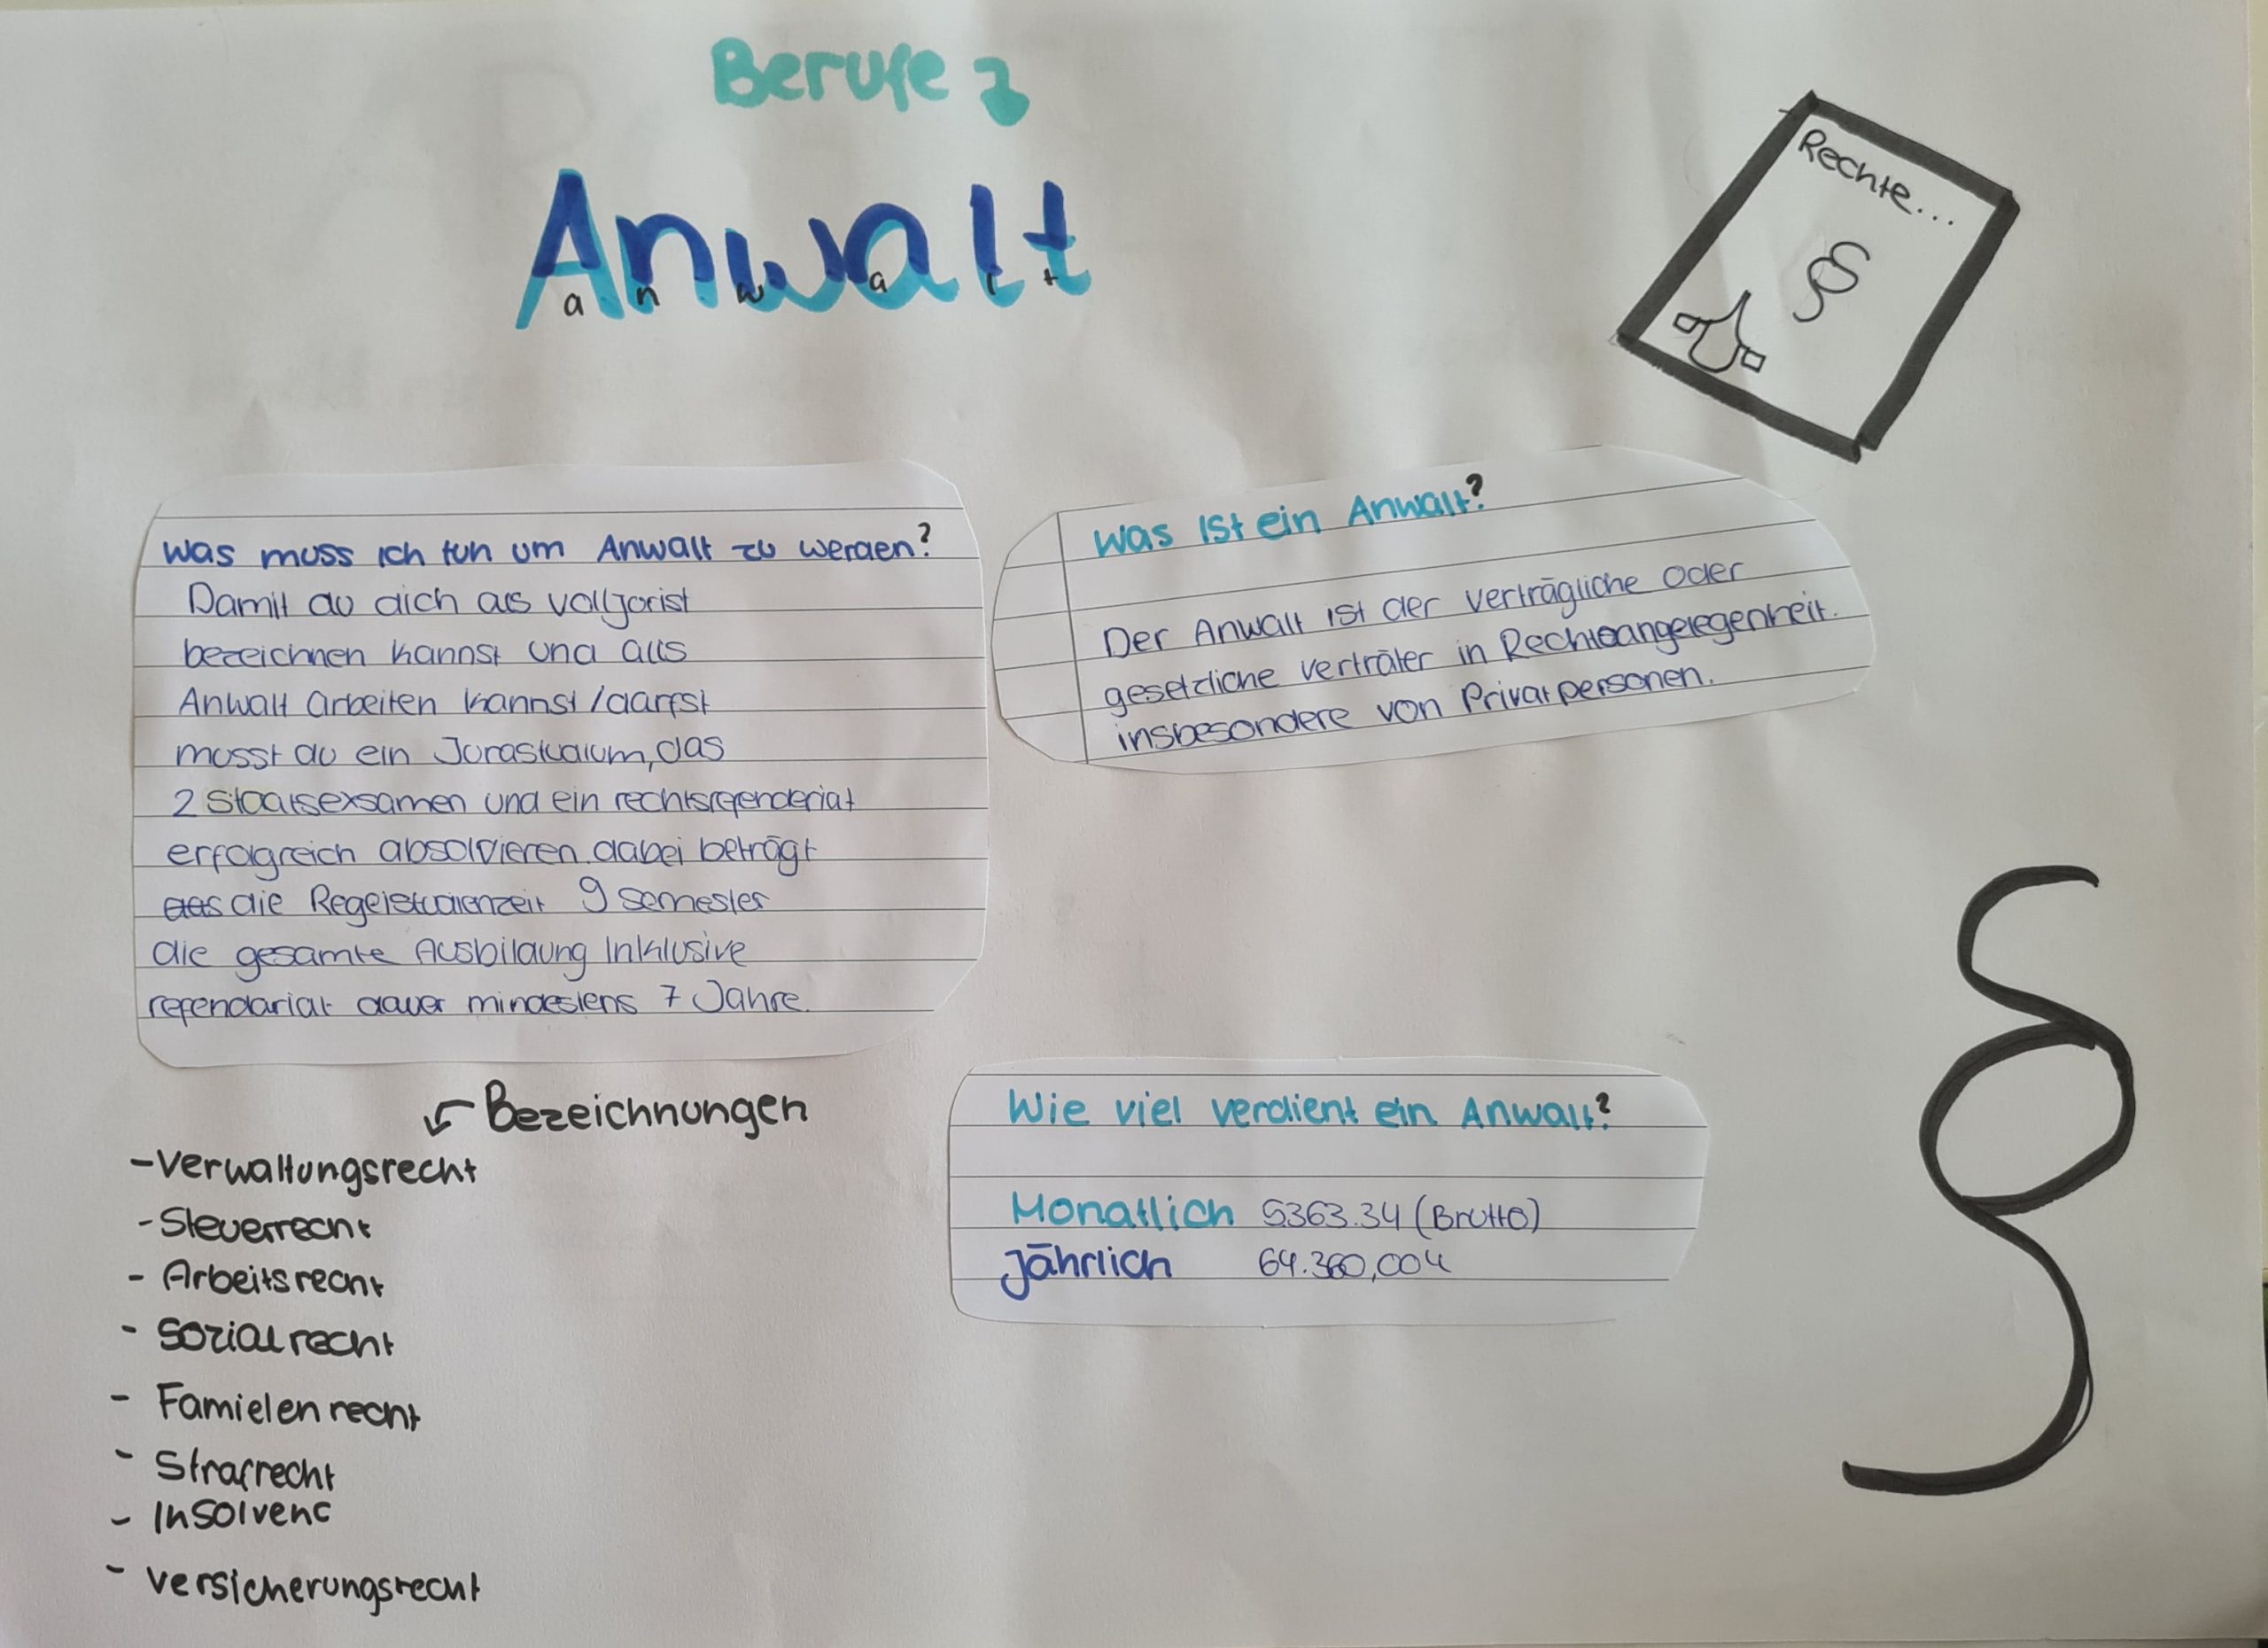 Berufe
Anwalt
a n w a l t
Rechte...
§
Was muss ich tun um Anwalt zu werden?
Damit du dich als volljorist
bezeichnen kannst und als
Anwalt arbeiten kannst/darfst
musst du ein Jurastudium, das
2 Staatsexsamen und ein rechtsrefenderiat
erfolgreich absolvieren. dabei beträgt
die Regelstudienzeit 9 semester
die gesamte Ausbildung Inklusive
refendariat dauer mindestens 7 Jahre.
Was Ist ein Anwalt?
Der Anwalt ist der verträgliche oder
gesetzliche verträter in Rechtsangelegenheit.
insbesondere von Privatpersonen.
Bezeichnungen
- Verwaltungsrecht
- Steuerrecht
- Arbeitsrecht
- Sozialrecht
- Famielenrecht
- Strafrecht
- Insolvenc
- versicherungsrecht
Wie viel verdient ein Anwalt?
Monatlich 5363.34 (Brutto)
Jährlich 64.360,00€
§